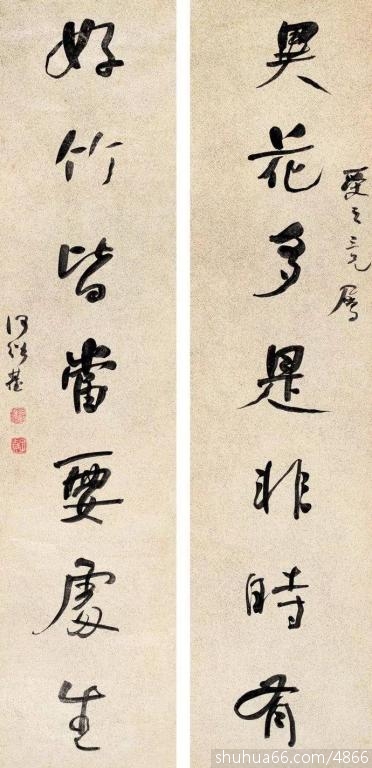 之三兄屬
異花多是非時有
好竹皆當要處生
何紹基
shuhua66.com/4866